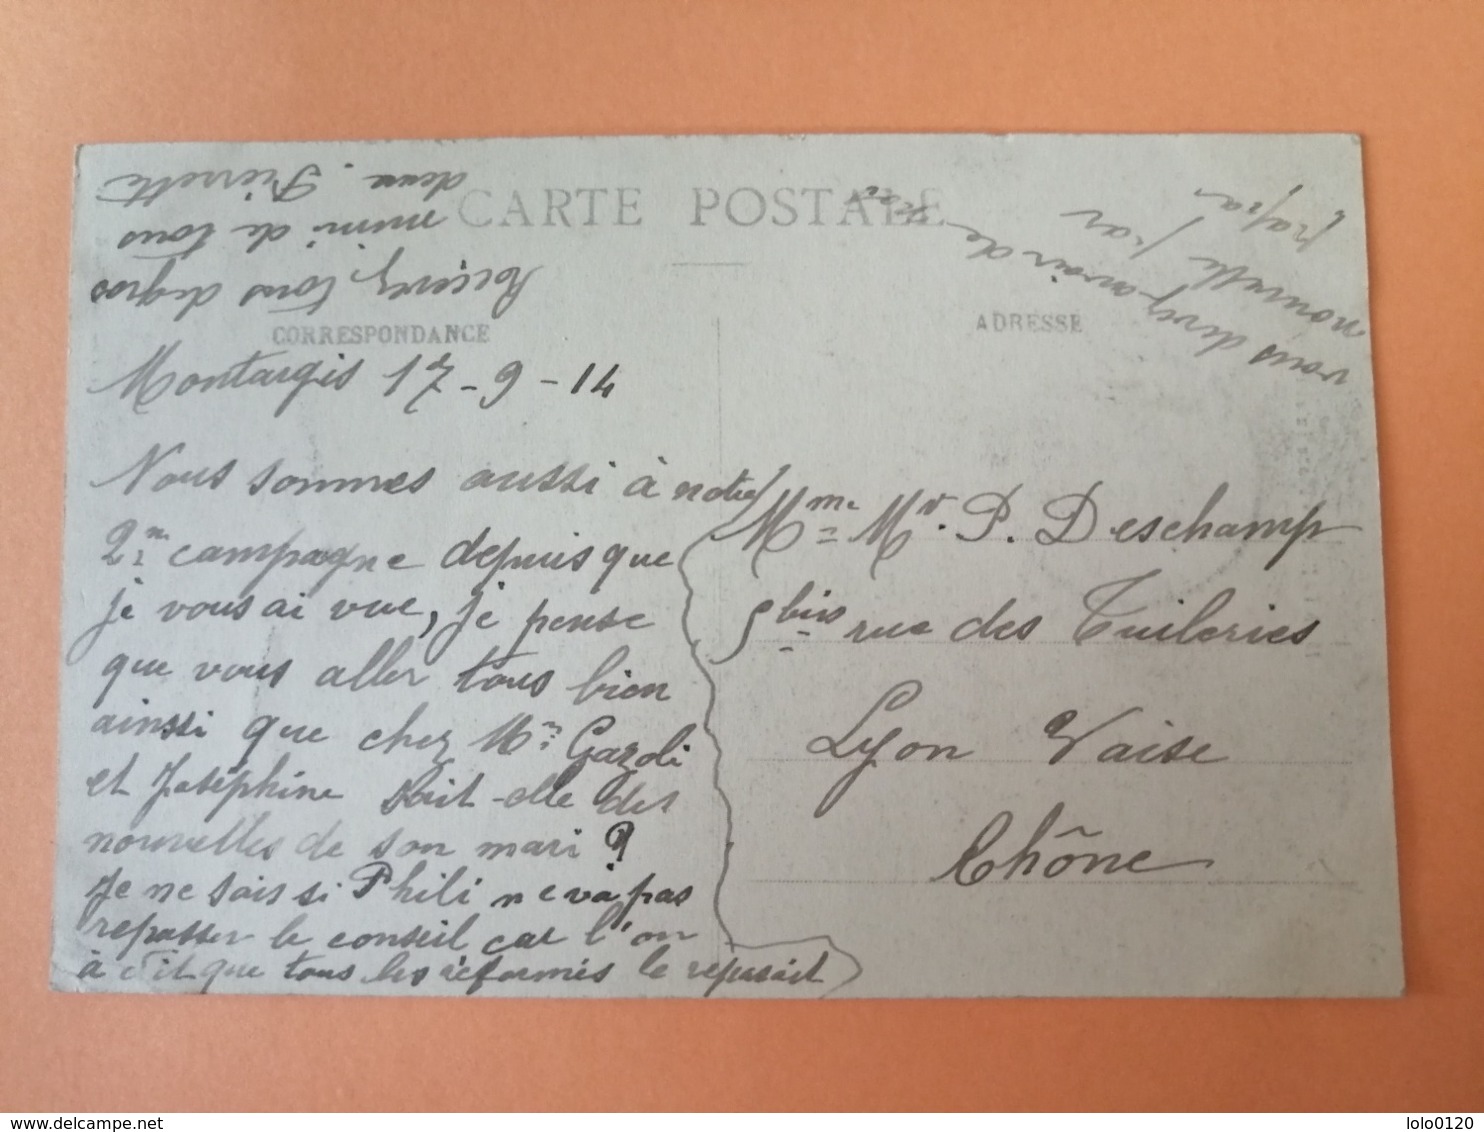 CARTE POSTALE
CORRESPONDANCE
ADRESSE
Montargis 17-9-14
Nous sommes aussi à notre
2me campagne depuis que
je vous ai vue, je pense
que vous aller tous bien
ainsi que chez Mr Gazoli
et Joséphine sait-elle des
nouvelles de son mari ?
Je ne sais si Phili ne va pas
repasser le conseil car l'on
à dit que tous les réformés le repassait
vous devez avoir de
nouvelle par
papa
Recevez tous de gros
mimi de tous
deux. Pierrette
Mme Mr. P. Deschamp
5 bis rue des Tuileries
Lyon Vaise
Rhône
lolo0120
delcampe.net